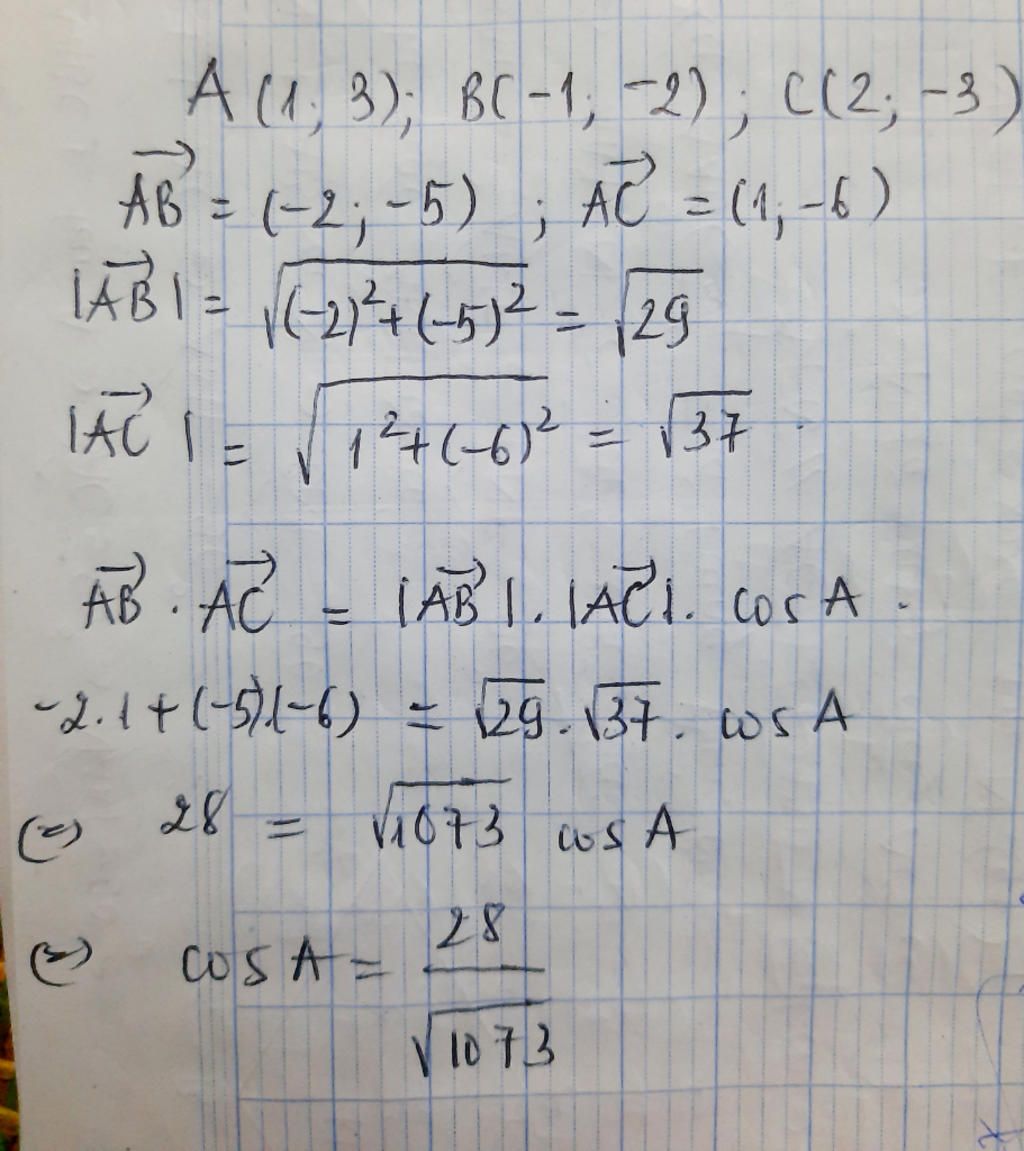 A(1; 3); B(-1; -2); C(2; -3)
→AB = (-2; -5) ; →AC = (1; -6)
|→AB| = √((-2)²+(-5)²) = √29
|→AC| = √(1²+(-6)²) = √37 .
→AB . →AC = |→AB|. |→AC|. cos A .
-2.1+(-5).(-6) = √29. √37. cos A
(=) 28 = √1073 cos A
(=) cos A = 28/√1073